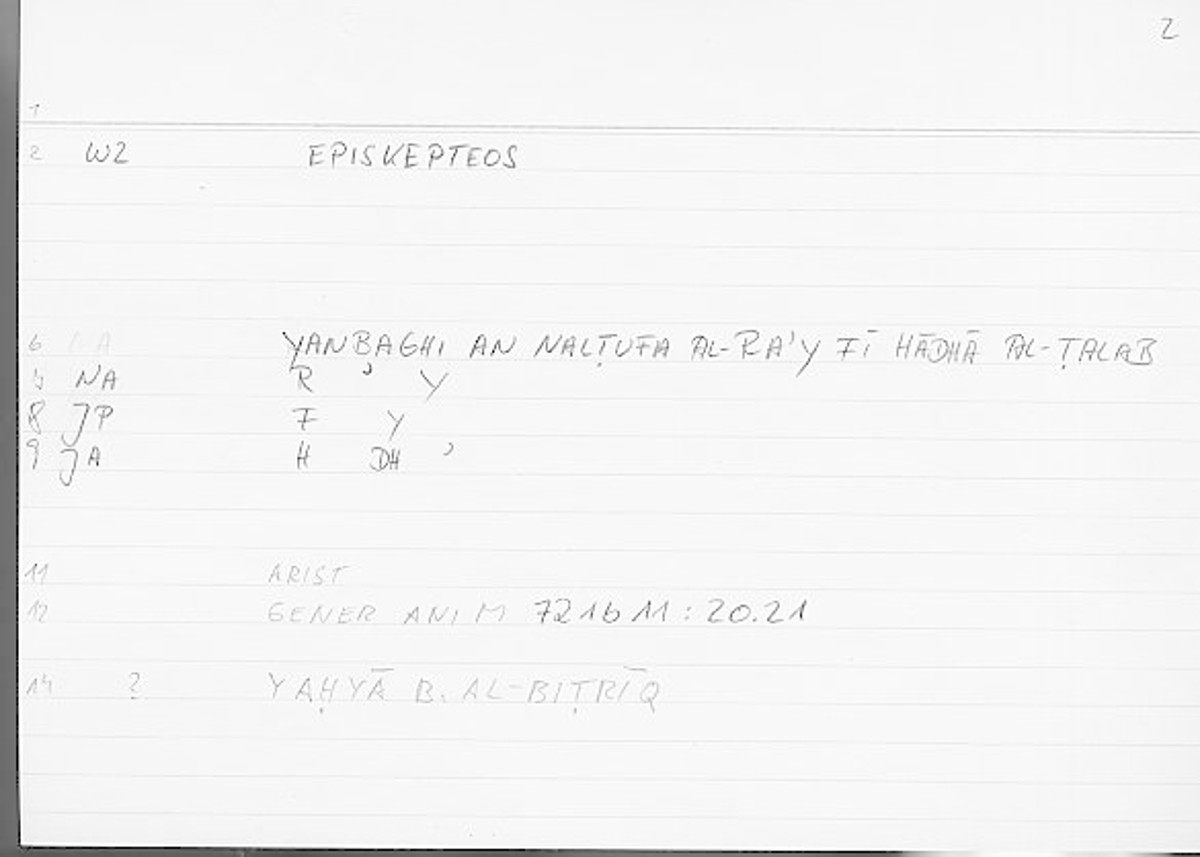 2
1
2 WZ EPISKEPTEOS
6 NA YANBAGHI AN NALṬUFA AL-RA'Y FĪ HĀDHĀ AL-ṬALAB
NA R ' Y
8 JP F Y
9 JA H DH '
11 ARIST
12 GENER ANIM 721b11:20.21
14 ? YAḤYĀ B. AL-BIṬRĪQ